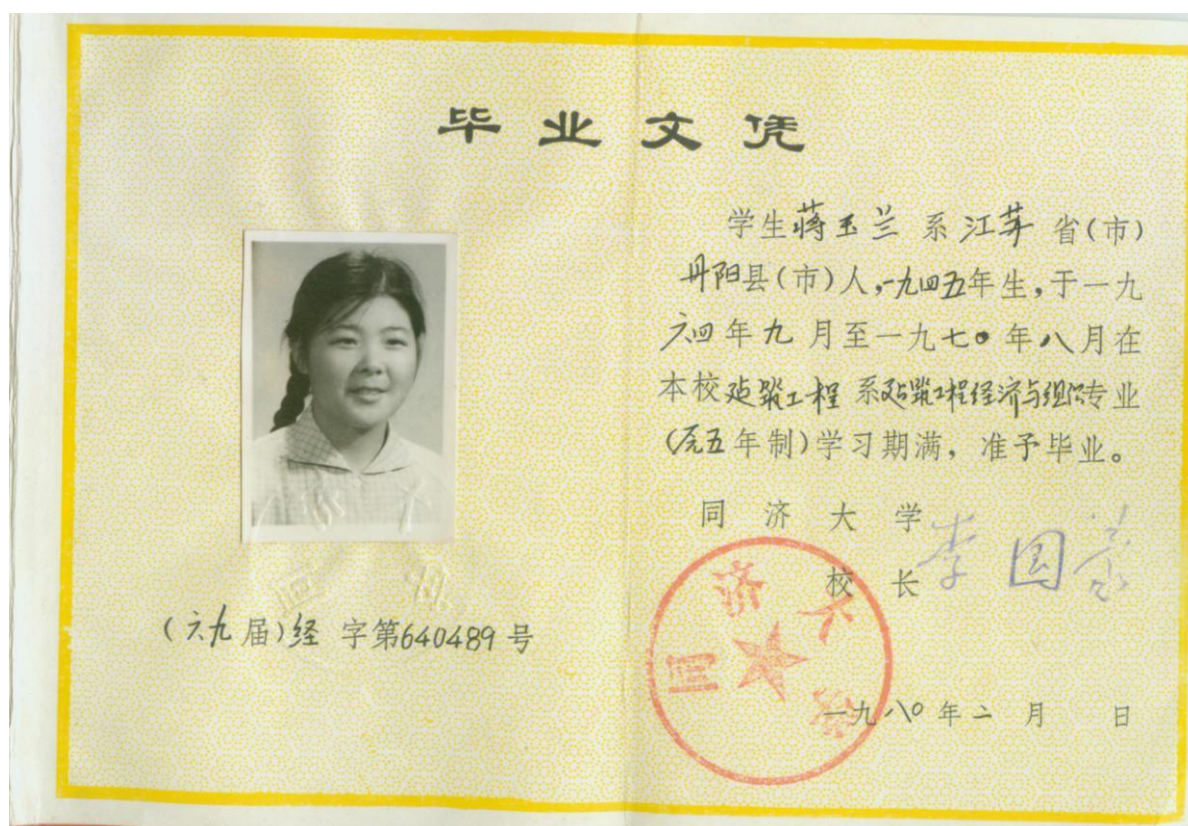 毕业文凭
学生蒋玉兰 系 江苏 省(市)
丹阳县(市)人,一九四五年生,于一九
六四年九月至一九七〇年八月在
本校建筑工程系建筑工程经济与组织专业
(五年制)学习期满,准予毕业。
同济大学
校长 李国豪
同济大学
一九八〇年二月 日
(六九届)经 字第640489号